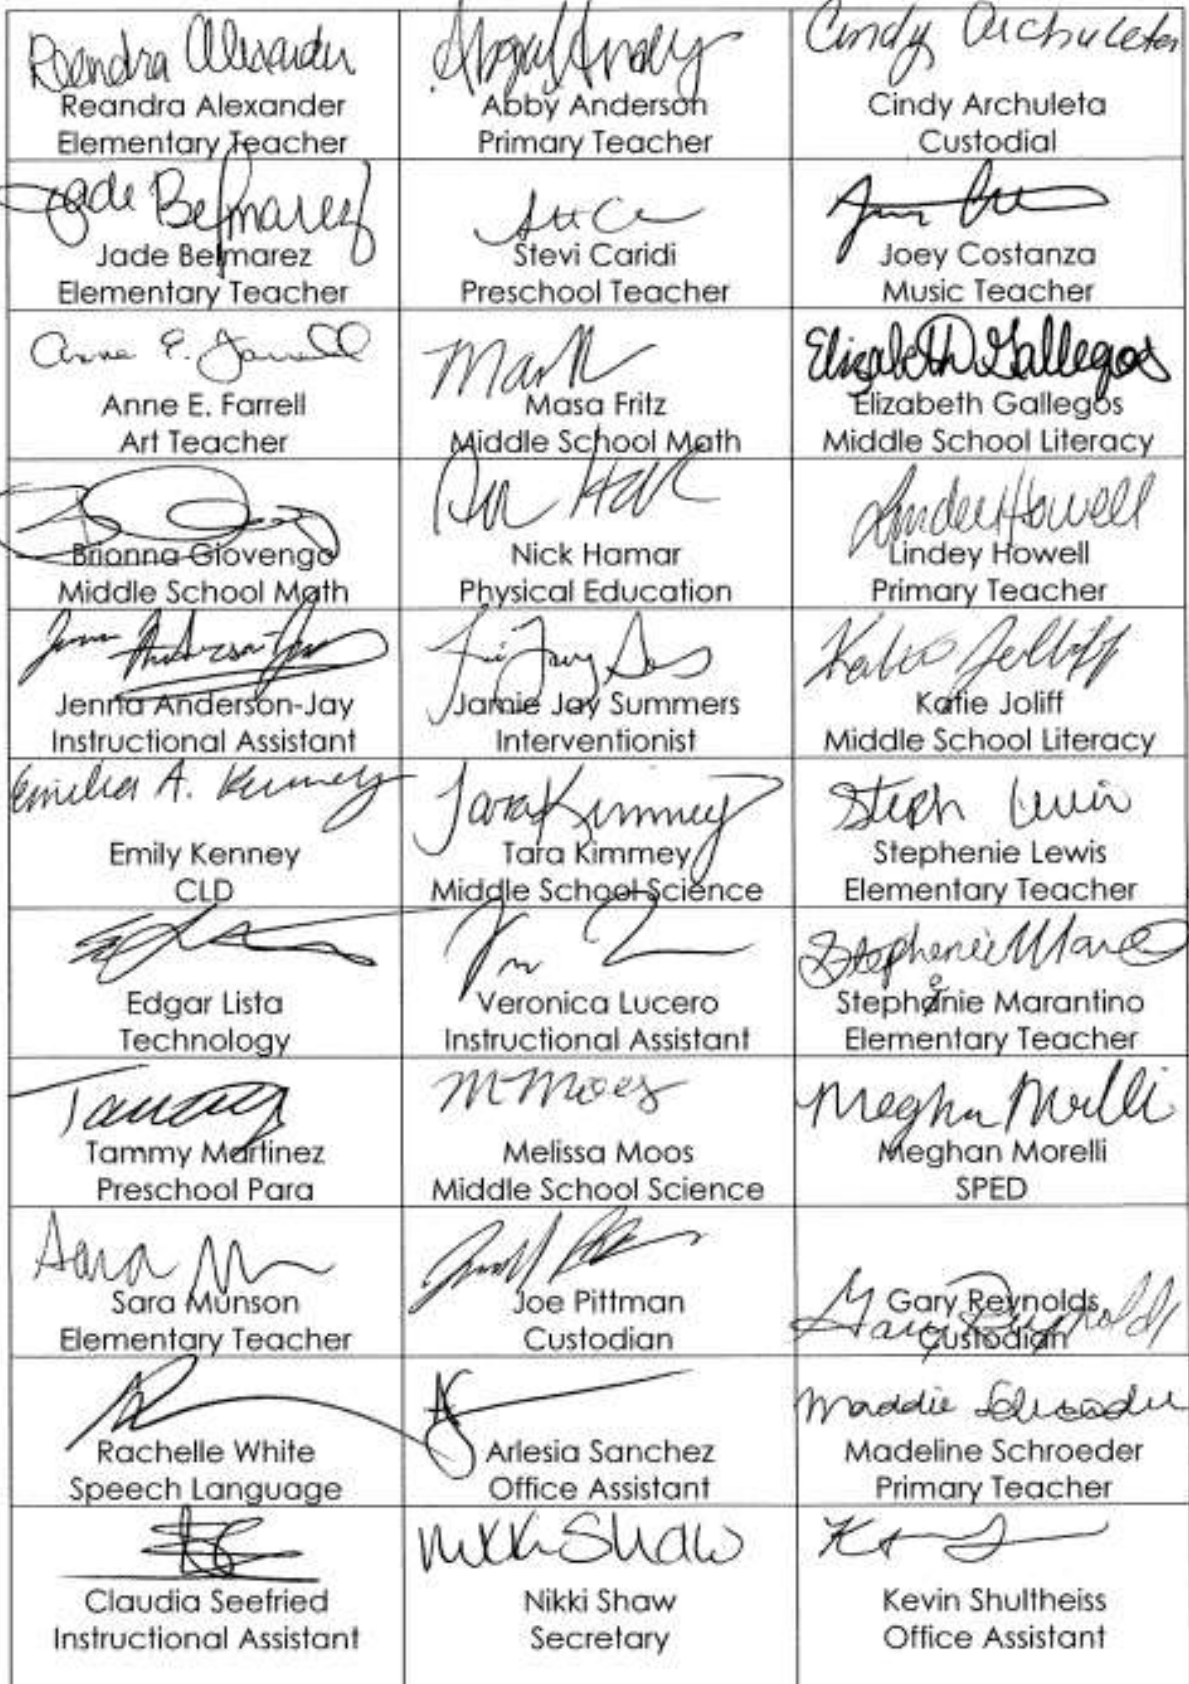 Reandra Alexander
Reandra Alexander
Elementary Teacher
Abby Anderson
Primary Teacher
Cindy Archuleta
Cindy Archuleta
Custodial
Jade Belmarez
Jade Belmarez
Elementary Teacher
Stevi Caridi
Preschool Teacher
Joey Costanza
Music Teacher
Anne E. Farrell
Anne E. Farrell
Art Teacher
Masa Fritz
Middle School Math
Elizabeth Gallegos
Elizabeth Gallegos
Middle School Literacy
Brionna Giovengo
Middle School Math
Nick Hamar
Physical Education
Lindey Howell
Lindey Howell
Primary Teacher
Jenna Anderson-Jay
Jenna Anderson-Jay
Instructional Assistant
Jamie Jay Summers
Interventionist
Katie Jolliff
Katie Joliff
Middle School Literacy
Emilia A. Kenney
Emily Kenney
CLD
Tara Kimmey
Tara Kimmey
Middle School Science
Steph Lewis
Stephenie Lewis
Elementary Teacher
Edgar Lista
Technology
Veronica Lucero
Instructional Assistant
Stephenie Mara
Stephanie Marantino
Elementary Teacher
Tammy Martinez
Preschool Para
M Moos
Melissa Moos
Middle School Science
Meghan Morelli
Meghan Morelli
SPED
Sara
Sara Munson
Elementary Teacher
Joe Pittman
Custodian
Gary Reynolds
Gary Reynolds
Custodian
Rachelle White
Speech Language
Arlesia Sanchez
Office Assistant
Maddie Schroeder
Madeline Schroeder
Primary Teacher
Claudia Seefried
Instructional Assistant
Nikki Shaw
Nikki Shaw
Secretary
Kevin Shultheiss
Office Assistant